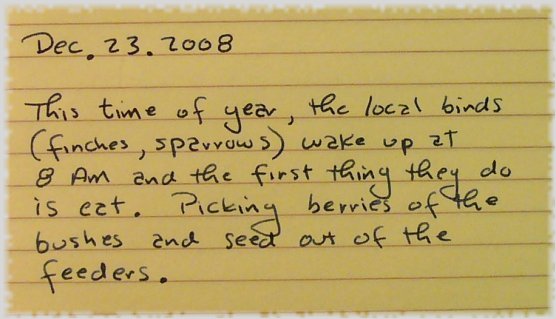 Dec. 23. 2008
This time of year, the local binds
(finches, sparrows) wake up at
8 AM and the first thing they do
is eat. Picking berries of the
bushes and seed out of the
feeders.